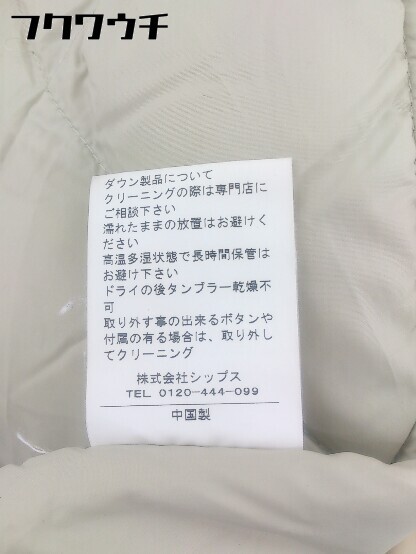 フクワウチ
ダウン製品について
クリーニングの際は専門店に
ご相談下さい
濡れたままの放置はお避けく
ださい
高温多湿状態で長時間保管は
お避け下さい
ドライの後タンブラー乾燥不
可
取り外す事の出来るボタンや
付属の有る場合は、取り外し
てクリーニング
株式会社シップス
TEL 0120-444-099
中国製